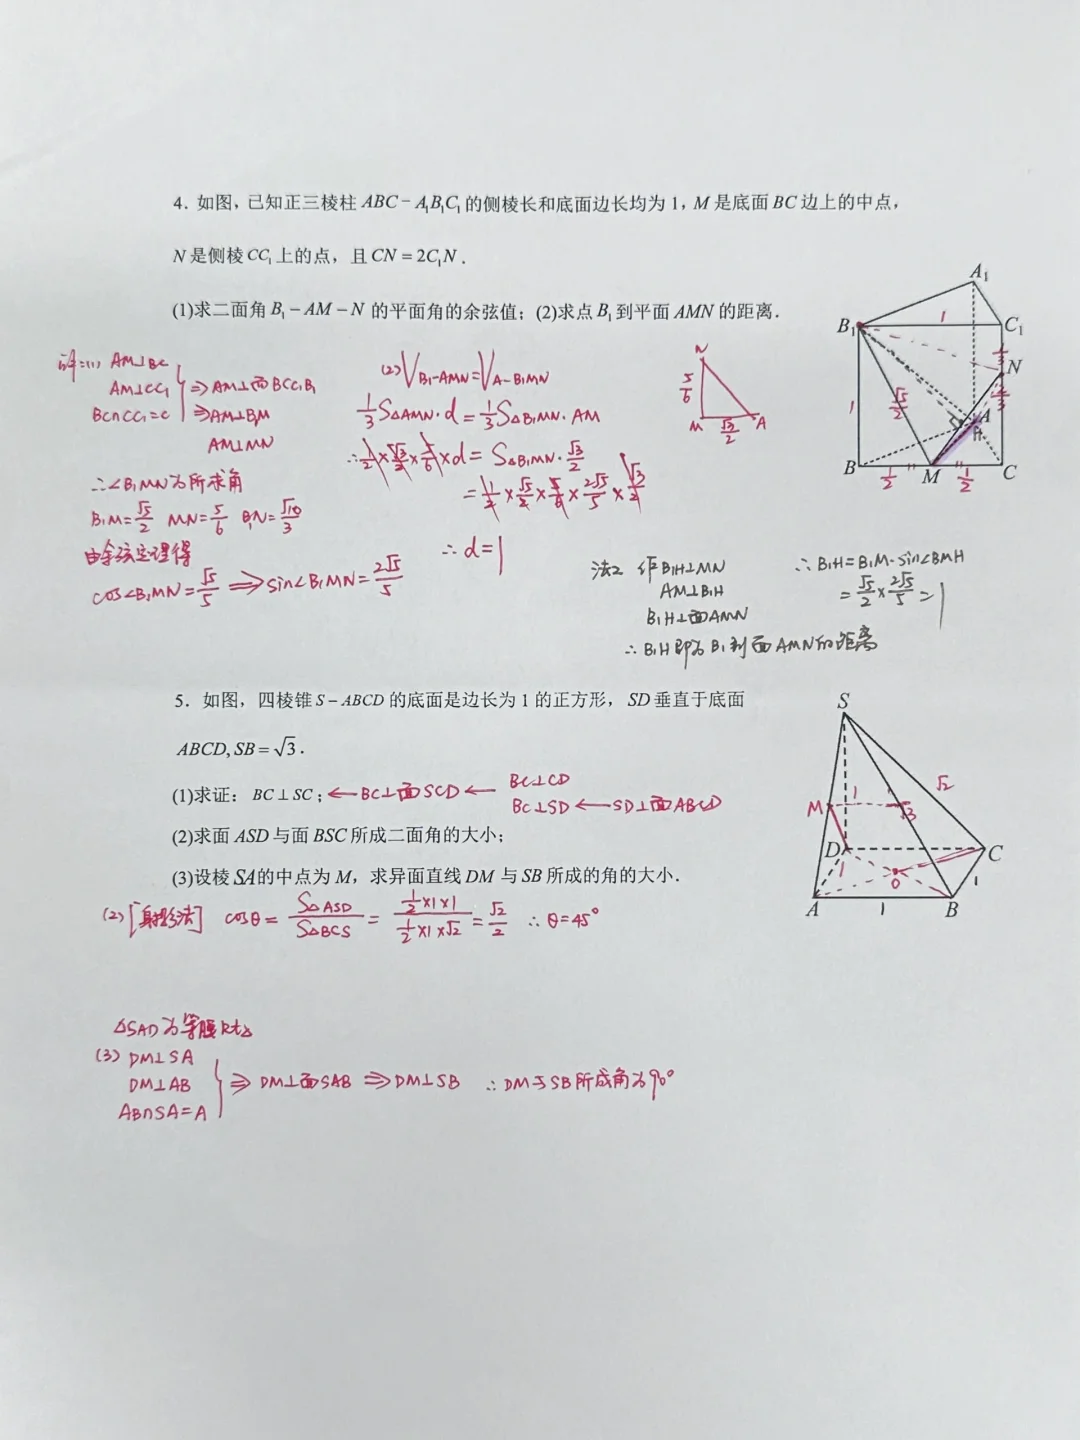 4. 如图,已知正三棱柱 ABC-A₁B₁C₁ 的侧棱长和底面边长均为 1, M 是底面 BC 边上的中点,
N 是侧棱 CC₁ 上的点, 且 CN = 2C₁N .
(1)求二面角 B₁-AM-N 的平面角的余弦值; (2)求点 B₁ 到平面 AMN 的距离.
A₁
B₁
1
C₁
1/3
N
2/3
√5/2
1
A
H
B
1/2
M
1/2
C
(1) AM⊥BC
AM⊥CC₁
BC∩CC₁=C
⇒AM⊥面BCC₁B₁
⇒AM⊥B₁M
AM⊥MN
∴∠B₁MN为所求角
B₁M=√5/2 MN=5/6 B₁N=√10/3
由余弦定理得
cos∠B₁MN=√5/5 ⇒ sin∠B₁MN=2√5/5
(2) V B₁-AMN = V A-B₁MN
1/3 S△AMN·d = 1/3 S△B₁MN·AM
∴ 1/2×√3/2×5/6×d = S△B₁MN·√3/2
= 1/2×√5/2×5/6×2√5/5×√3/2
∴ d=1
N
5/6
M
√3/2
A
法2 作B₁H⊥MN
AM⊥B₁H
B₁H⊥面AMN
∴ B₁H即为B₁到面AMN的距离
∴ B₁H=B₁M·sin∠BMH
= √5/2×2√5/5=1
5. 如图, 四棱锥 S-ABCD 的底面是边长为 1 的正方形, SD 垂直于底面
ABCD, SB=√3 .
(1)求证: BC⊥SC ; ←BC⊥面SCD← BC⊥CD
BC⊥SD←SD⊥面ABCD
(2)求面 ASD 与面 BSC 所成二面角的大小;
(3)设棱 SA 的中点为 M, 求异面直线 DM 与 SB 所成的角的大小.
S
√2
M
1
√3
D
1
O
C
1
A
1
B
(2)[射影法] cosθ= S△ASD/S△BCS = (1/2×1×1)/(1/2×1×√2) = √2/2 ∴θ=45°
△SAD为等腰Rt△
(3) DM⊥SA
DM⊥AB
AB∩SA=A
⇒ DM⊥面SAB ⇒DM⊥SB ∴DM与SB所成角为90°